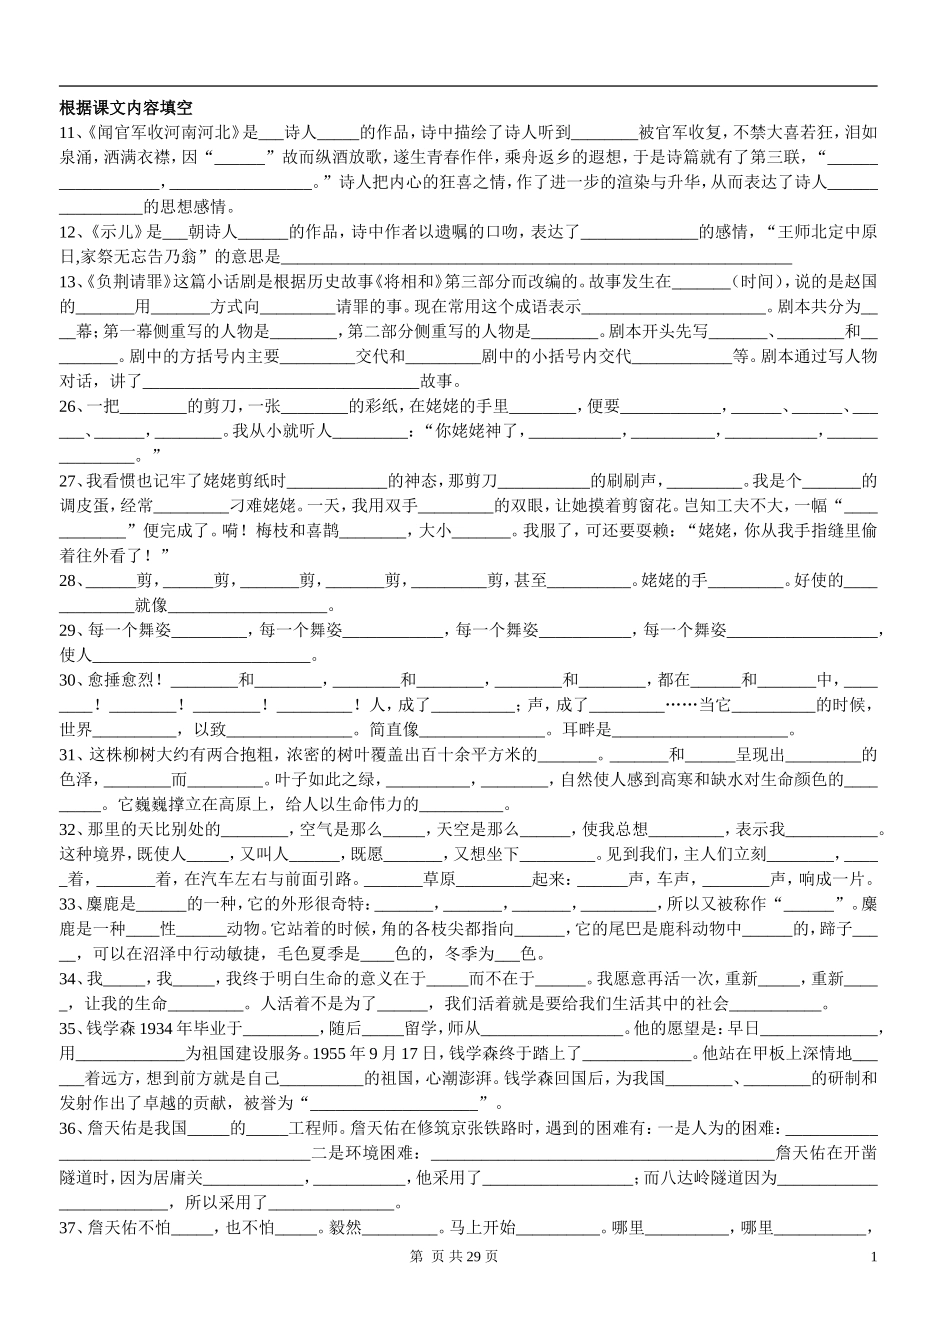 根据课文内容填空
11、《闻官军收河南河北》是___诗人_____的作品，诗中描绘了诗人听到________被官军收复，不禁大喜若狂，泪如
泉涌，洒满衣襟，因“______”故而纵酒放歌，遂生青春作伴，乘舟返乡的遐想，于是诗篇就有了第三联，“______
____________，_________________。”诗人把内心的狂喜之情，作了进一步的渲染与升华，从而表达了诗人______
__________的思想感情。
12、《示儿》是___朝诗人______的作品，诗中作者以遗嘱的口吻，表达了______________的感情，“王师北定中原
日,家祭无忘告乃翁”的意思是_____________________________________________________________
13、《负荆请罪》这篇小话剧是根据历史故事《将相和》第三部分而改编的。故事发生在_______（时间），说的是赵国
的_______用_______方式向_________请罪的事。现在常用这个成语表示______________________。剧本共分为___
__幕；第一幕侧重写的人物是________，第二部分侧重写的人物是________。剧本开头先写_______、________和__
_______。剧中的方括号内主要_________交代和_________剧中的小括号内交代____________等。剧本通过写人物
对话，讲了_________________________________故事。
26、一把________的剪刀，一张________的彩纸，在姥姥的手里________，便要____________，______、______、___
___、______，________。我从小就听人_________：“你姥姥神了，___________，__________，___________，______
_________。”
27、我看惯也记牢了姥姥剪纸时____________的神态，那剪刀___________的刷刷声，_________。我是个_______的
调皮蛋，经常_________刁难姥姥。一天，我用双手_________的双眼，让她摸着剪窗花。岂知工夫不大，一幅“____
________”便完成了。嗬！梅枝和喜鹊________，大小_______。我服了，可还要耍赖：“姥姥，你从我手指缝里偷
着往外看了！”
28、______剪，______剪，_______剪，_______剪，_________剪，甚至__________。姥姥的手_________。好使的____
_________就像___________________。
29、每一个舞姿_________，每一个舞姿____________，每一个舞姿___________，每一个舞姿__________________，
使人__________________________。
30、愈捶愈烈！________和________，________和________，________和________，都在______和_______中，____
____！________！________！_________！人，成了__________；声，成了_________……当它__________的时候，
世界__________，以致_______________。简直像_______________。耳畔是_____________________。
31、这株柳树大约有两合抱粗，浓密的树叶覆盖出百十余平方米的_______。_______和______呈现出_________的
色泽，________而_________。叶子如此之绿，__________，________，自然使人感到高寒和缺水对生命颜色的____
_____。它巍巍撑立在高原上，给人以生命伟力的__________。
32、那里的天比别处的________，空气是那么_____，天空是那么______，使我总想_________，表示我___________。
这种境界，既使人_____，又叫人______，既愿_______，又想坐下_________。见到我们，主人们立刻________，____
_着，_______着，在汽车左右与前面引路。_______草原_________起来：______声，车声，________声，响成一片。
33、麋鹿是______的一种，它的外形很奇特：_______，_______，_______，_________，所以又被称作“______”。麋
鹿是一种____性______动物。它站着的时候，角的各枝尖都指向______，它的尾巴是鹿科动物中______的，蹄子____
__，可以在沼泽中行动敏捷，毛色夏季是____色的，冬季为___色。
34、我_____，我_____，我终于明白生命的意义在于_____而不在于______。我愿意再活一次，重新_____，重新____
_，让我的生命_________。人活着不是为了______，我们活着就是要给我们生活其中的社会___________。
35、钱学森 1934 年毕业于_________，随后_____留学，师从_________________。他的愿望是：早日______________，
用_____________为祖国建设服务。1955 年 9 月 17 日，钱学森终于踏上了_____________。他站在甲板上深情地___
___着远方，想到前方就是自己__________的祖国，心潮澎湃。钱学森回国后，为我国________、________的研制和
发射作出了卓越的贡献，被誉为“____________________”。
36、詹天佑是我国_____的_____工程师。詹天佑在修筑京张铁路时，遇到的困难有：一是人为的困难：___________
______________________________二是环境困难：_________________________________________詹天佑在开凿
隧道时，因为居庸关____________，___________，他采用了__________________；而八达岭隧道因为____________
_____________，所以采用了_______________。
37、詹天佑不怕_____，也不怕_____。毅然_________。马上开始__________。哪里__________，哪里___________，
第 页 共 29 页 1